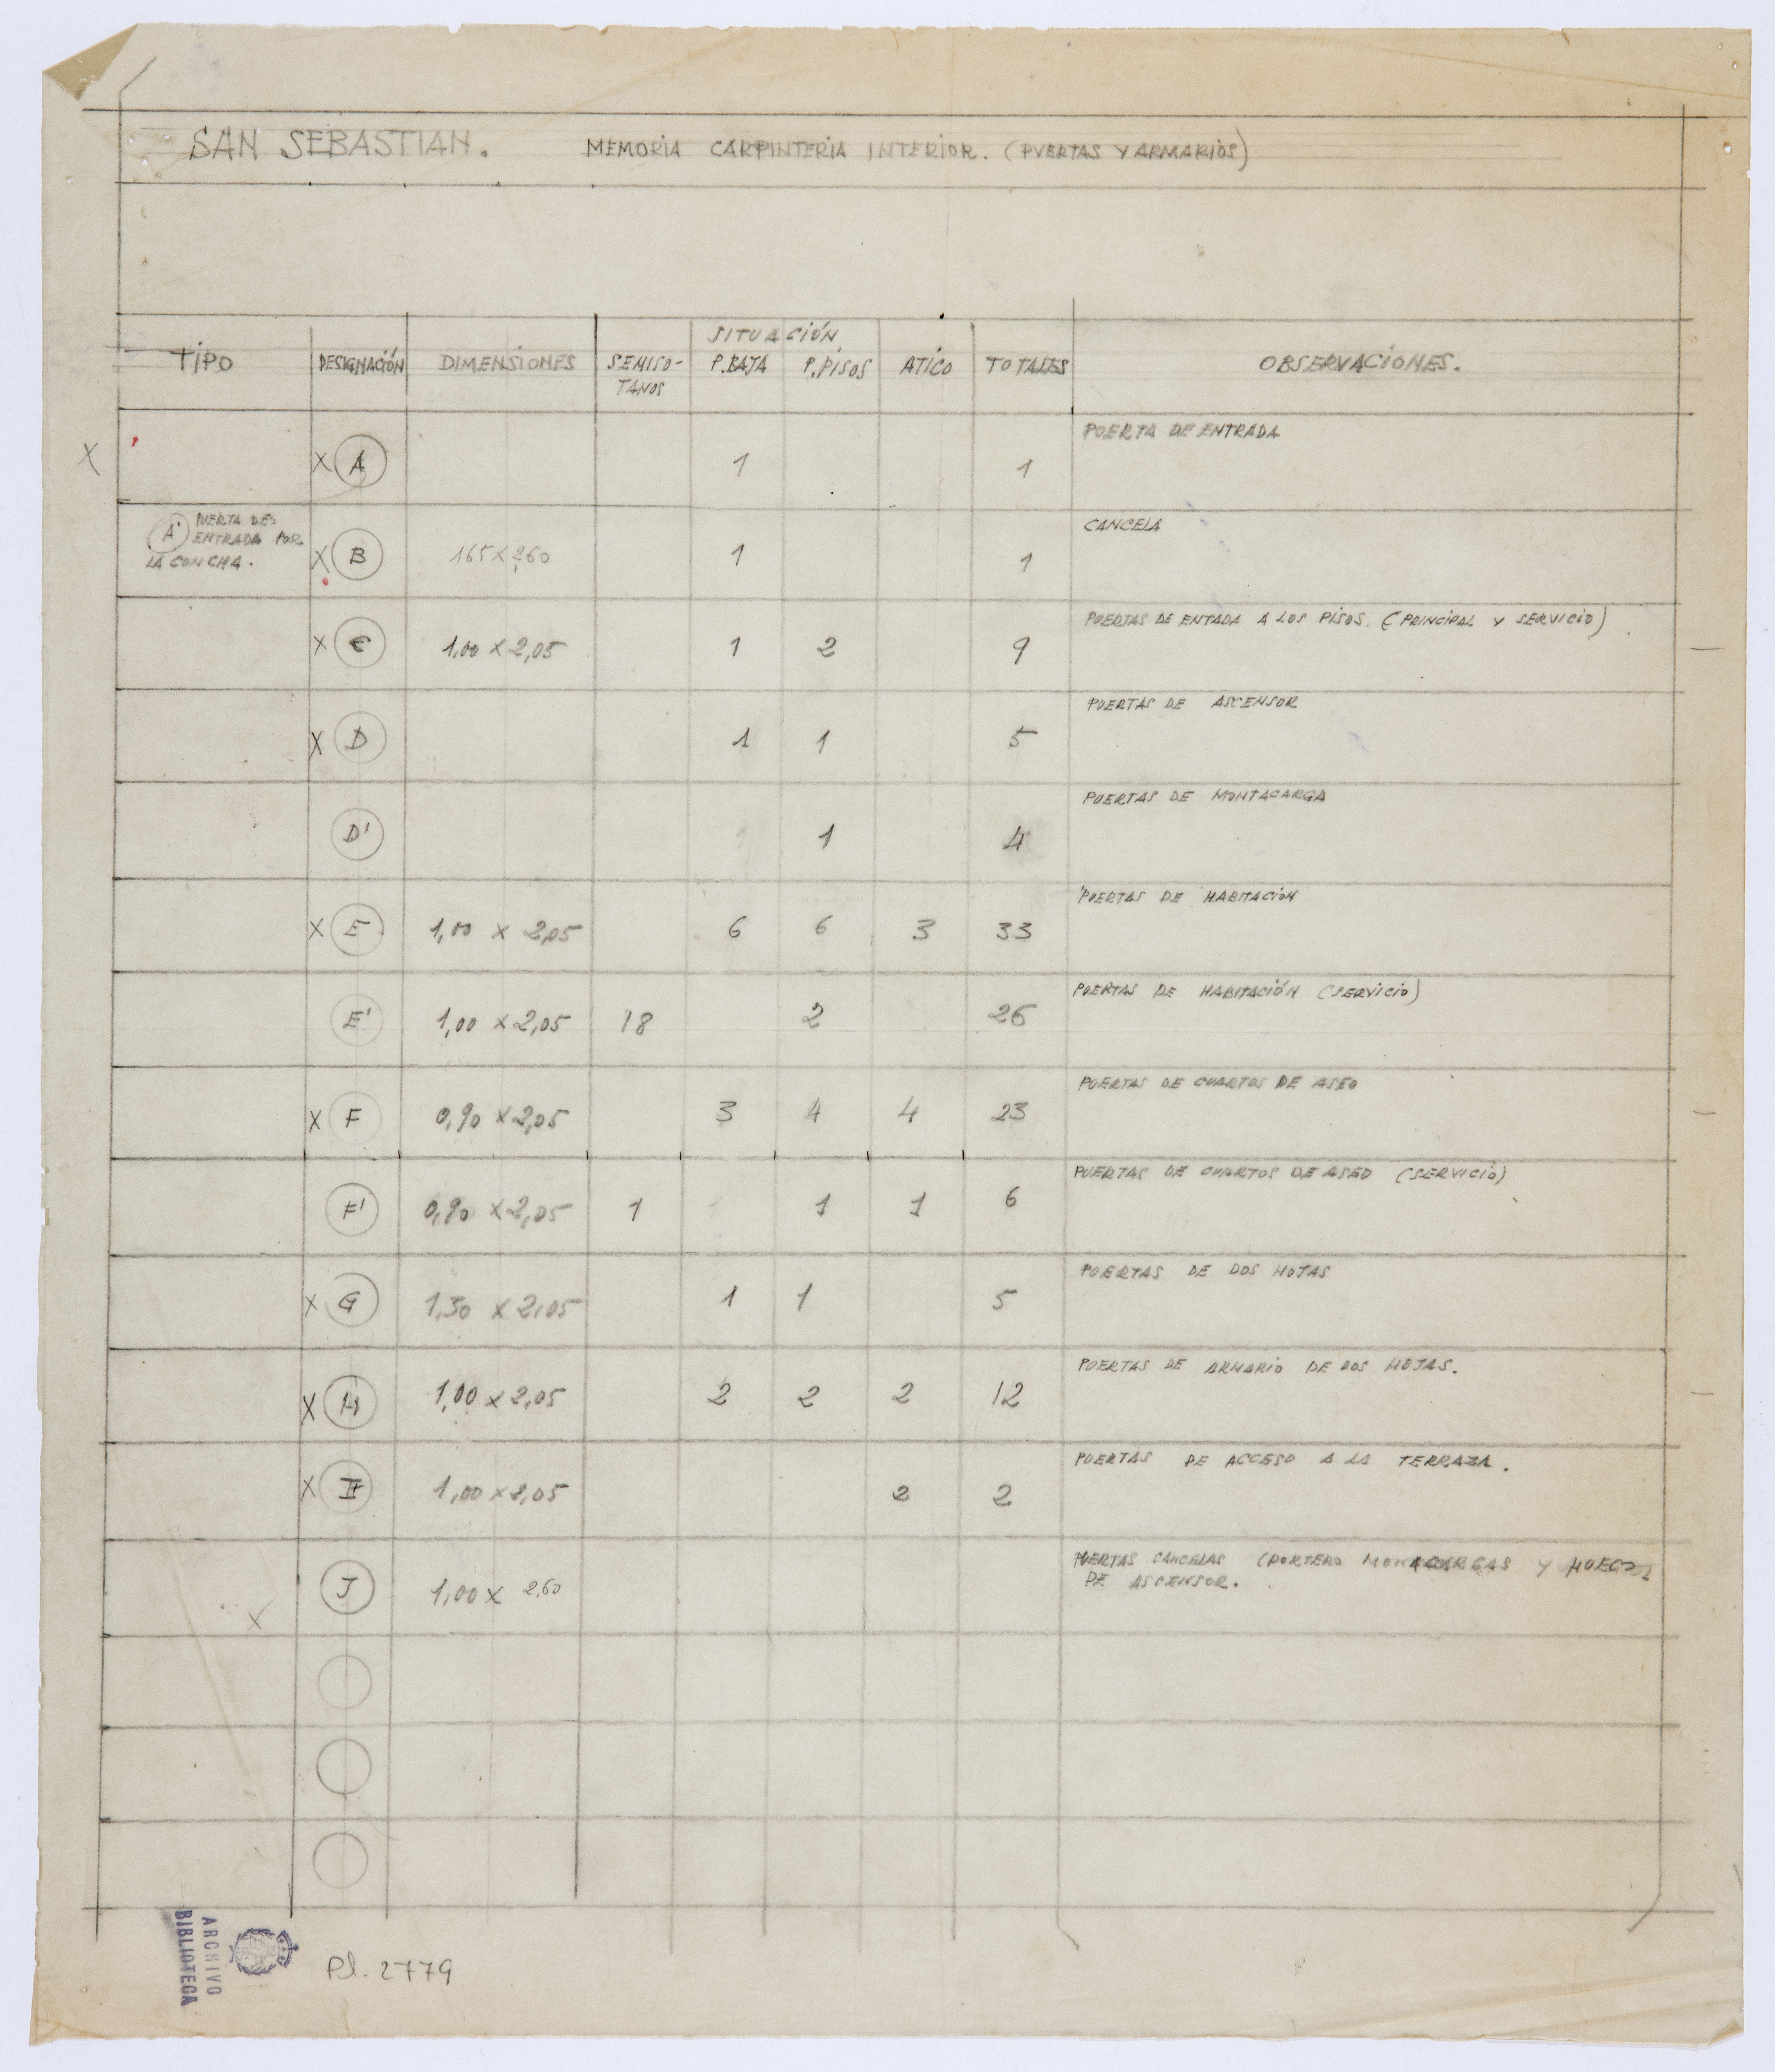 SAN SEBASTIAN. MEMORIA CARPINTERIA INTERIOR. (PUERTAS Y ARMARIOS)
SITUACIÓN
TIPO DESIGNACIÓN DIMENSIONES SEMISO- P.BAJA P.PISOS ATICO TOTALES OBSERVACIONES.
TANOS
PUERTA DE ENTRADA
X X A 1 1
A' PUERTA DE CANCELA
ENTRADA POR
LA CONCHA. X B 165 X 260 1 1
PUERTAS DE ENTADA A LOS PISOS. (PRINCIPAL Y SERVICIO)
X C 1,00 X 2,05 1 2 9
PUERTAS DE ASCENSOR
X D 1 1 5
PUERTAS DE MONTACARGA
D' 1 4
PUERTAS DE HABITACIÓN
X E 1,00 X 2,05 6 6 3 33
PUERTAS DE HABITACIÓN (SERVICIO)
E' 1,00 X 2,05 18 2 26
PUERTAS DE CUARTOS DE ASEO
X F 0,90 X 2,05 3 4 4 23
PUERTAS DE CUARTOS DE ASEO (SERVICIO)
F' 0,90 X 2,05 1 1 1 6
PUERTAS DE DOS HOJAS
X G 1,30 X 2,05 1 1 5
PUERTAS DE ARMARIO DE DOS HOJAS.
X H 1,00 X 2,05 2 2 2 12
PUERTAS DE ACCESO A LA TERRAZA.
X I 1,00 X 2,05 2 2
PUERTAS CANCELAS (PORTERO MONACARGAS Y HUECOS
DE ASCENSOR.
X J 1,00 X 2,60
ARCHIVO
BIBLIOTECA
Pl. 2779